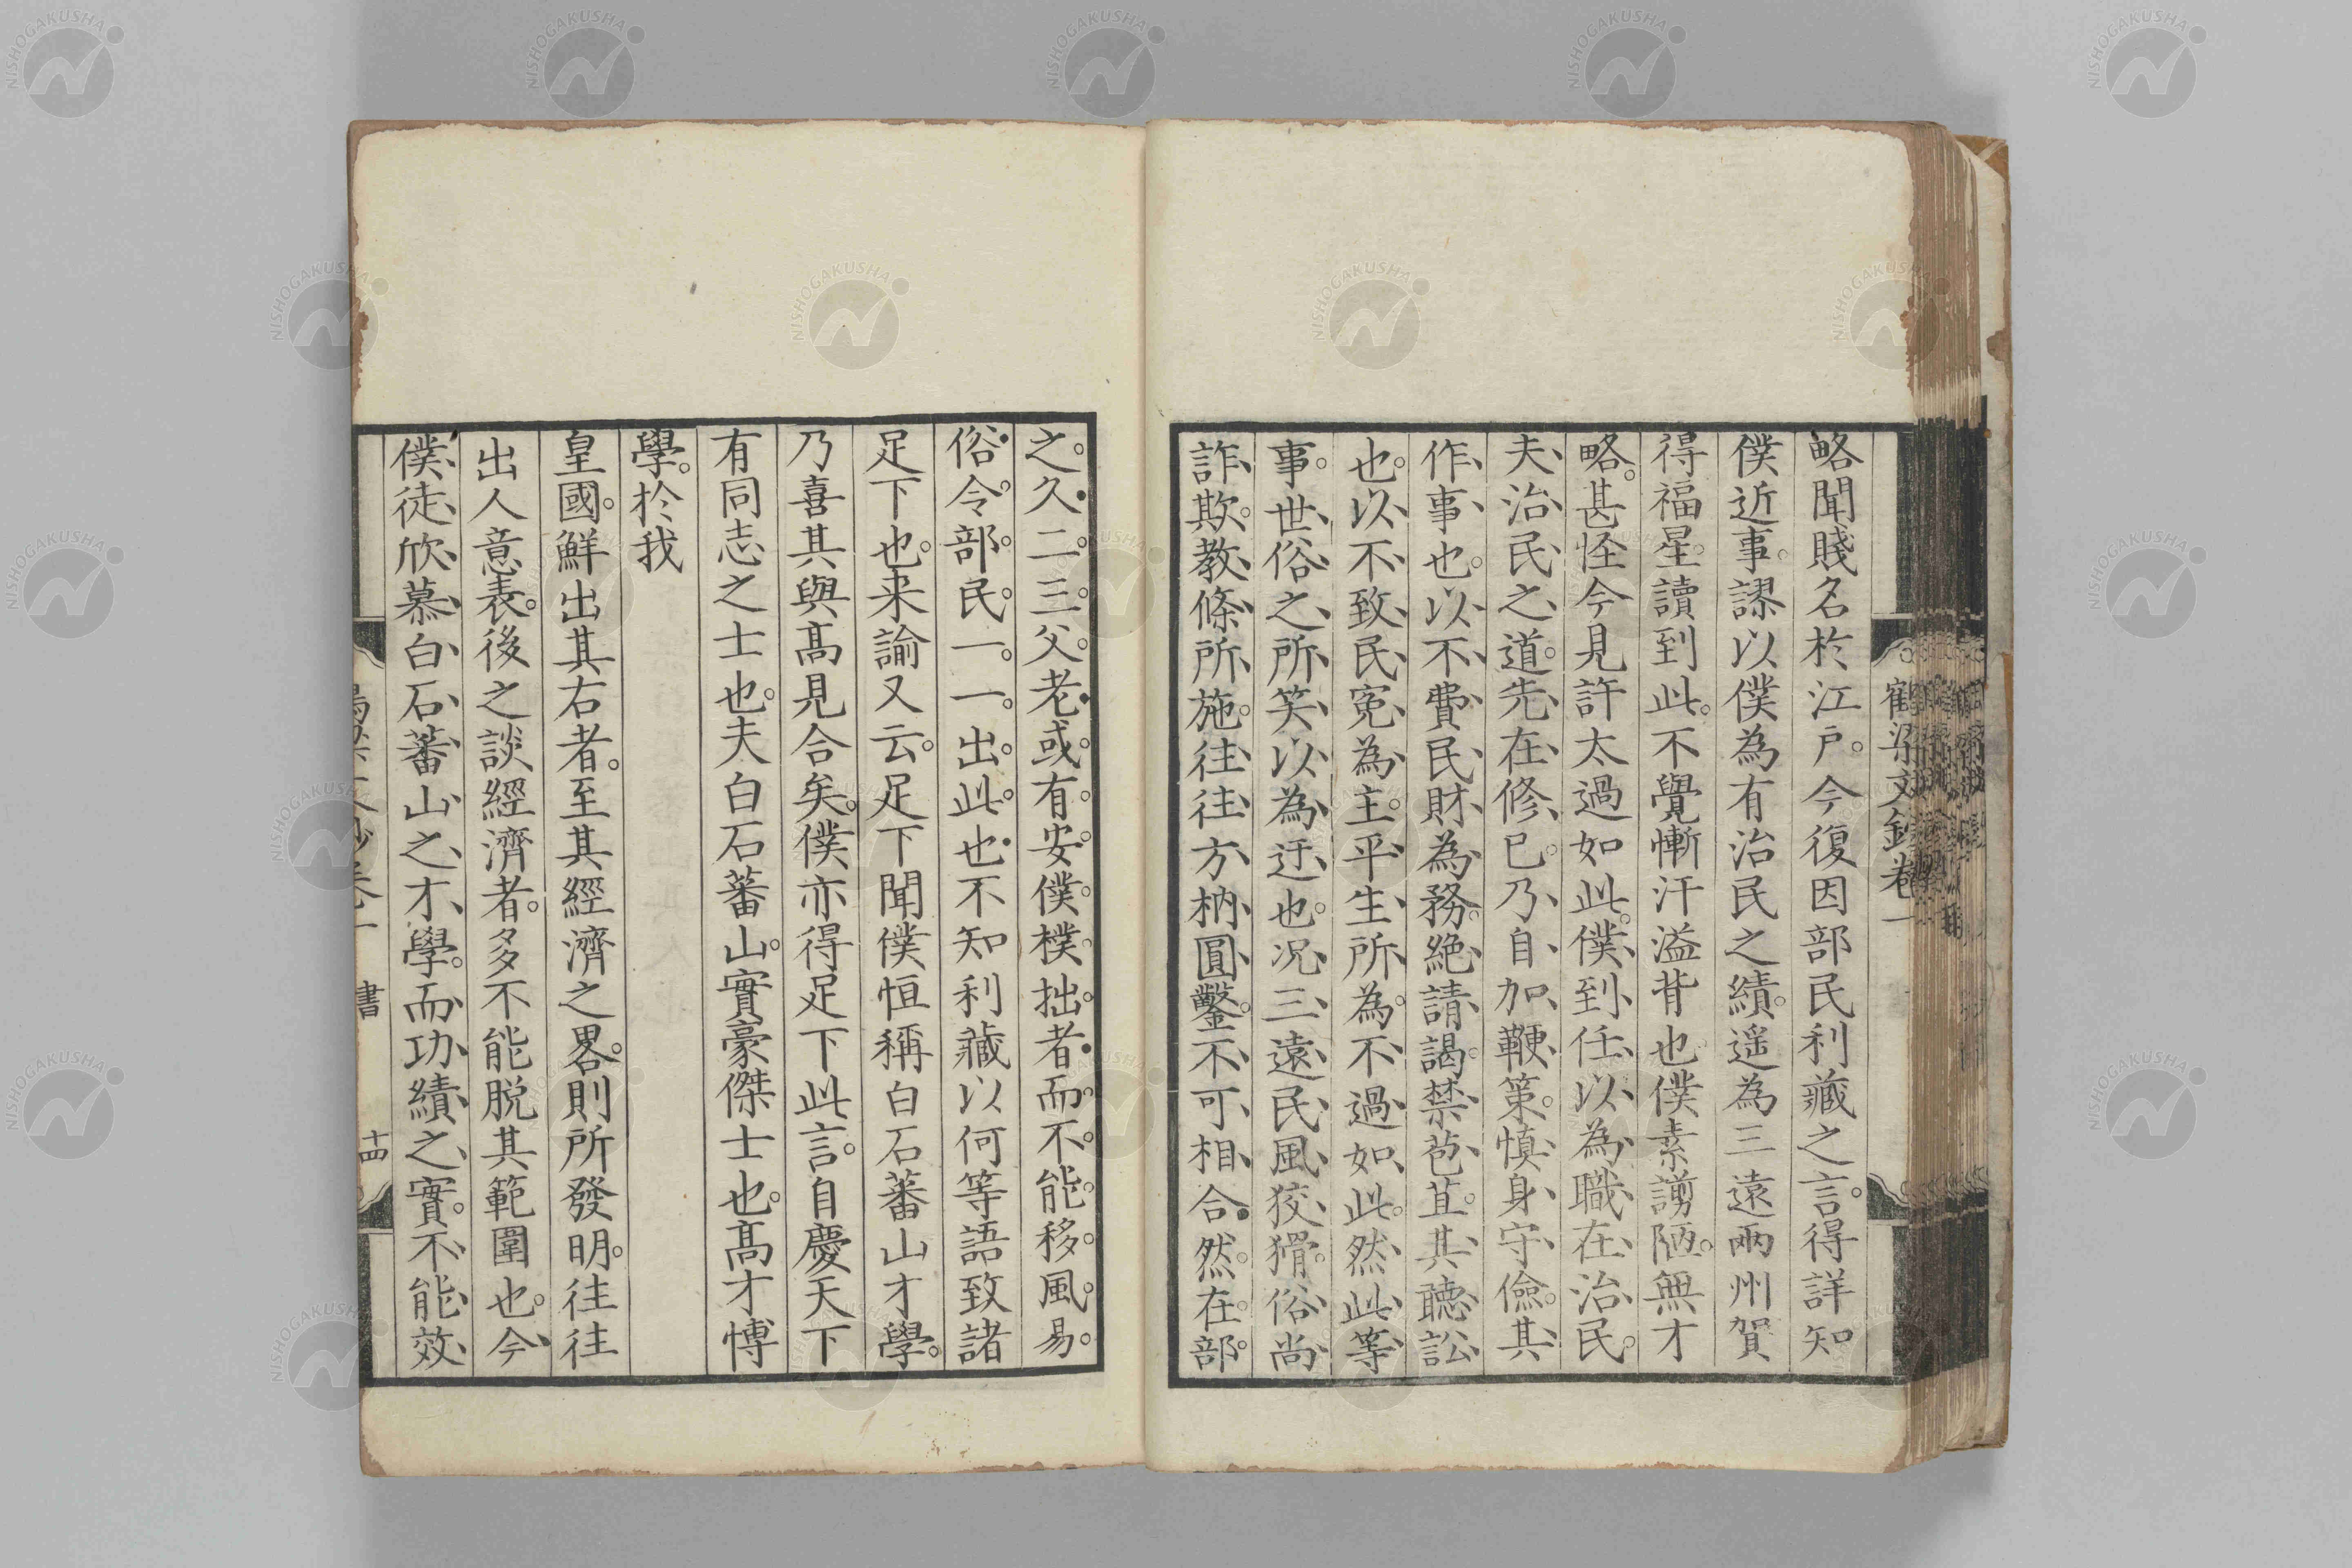 鶴梁文鈔卷一
略聞賤名於江戸。今復因部民利藏之言。得詳知
僕近事。謬以僕為有治民之績。遥為三遠兩州賀
得福星。讀到此。不覺慚汗溢背也僕素謭陋。無才
略。甚怪今見許太過如此。僕、到、任、以、為、職、在、治、民。
夫、治、民、之、道。先、在、修、己。乃、自、加、鞭、策。慎、身、守、儉。其、
作、事、也。以、不、費、民、財、為、務。絶、請、謁。禁、苞、苴。其、聽、訟、
也。以、不、致、民、寃、為、主。平、生、所、為。不、過、如、此。然、此、等、
事。世、俗、之、所、笑、以、為、迂、也。况、三、遠、民、風、狡、猾。俗、尚、
詐、欺。教、條、所、施。往、往、方、枘、圓、鑿。不、可、相、合。然。在。部。
之。久。二。三。父。老。或。有。安。僕。樸。拙。者。而。不。能。移。風。易。
俗。令。部。民。一。一。出。此。也。不知利藏以何等語致諸
足下也。来諭又云。足下聞僕恒稱白石蕃山才學。
乃喜其與髙見合矣。僕亦得足下此言。自慶天下
有同志之士也。夫白石蕃山。實豪傑士也。髙才博
學。於我
皇國。鮮出其右者。至其經濟之畧。則所發明。往往
出人意表。後之談經濟者。多不能脱其範圍也。今、
僕、徒、欣、慕、白、石、蕃、山、之、才、學。而、功、績、之、實。不、能、效、
書
十四
NISHOGAKUSHA